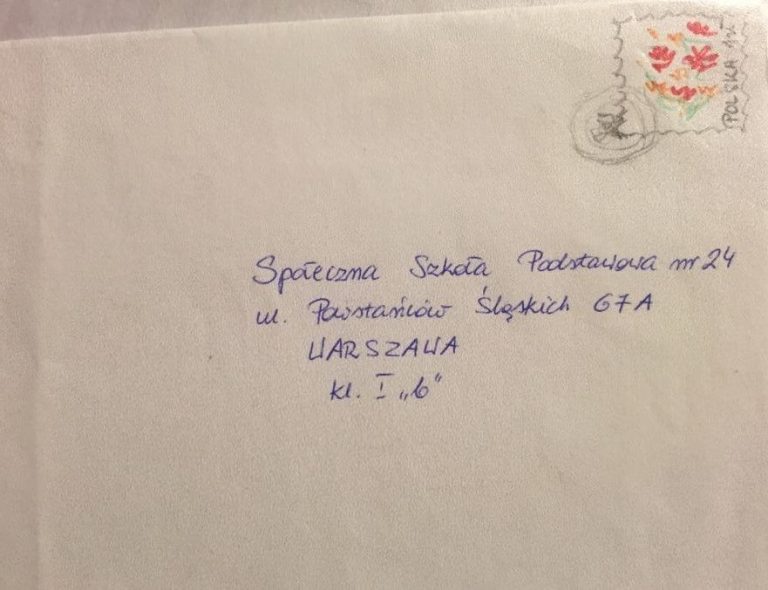 POLSKA 1zł
Społeczna Szkoła Podstawowa nr 24
ul. Powstańców Śląskich 67A
WARSZAWA
kl. I „b"